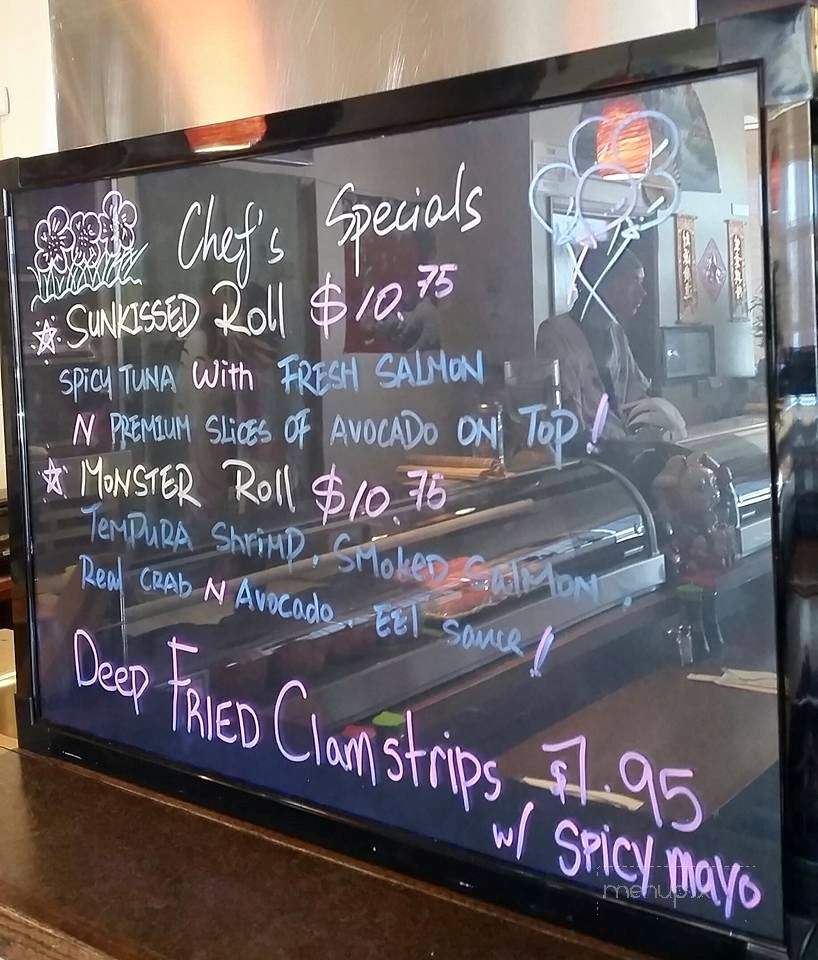 Chef's Specials
SUNKISSED Roll $10.75
SPICY TUNA with FRESH SALMON
N PREMIUM SLICES OF AVOCADO ON TOP!
MONSTER Roll $10.75
TEMPURA ShriMP, SMOKED SalMON,
Real CRAb N Avocado, EEl sauce!
Deep FRIED Clam strips $7.95
w/ SPicy mayo
menupix